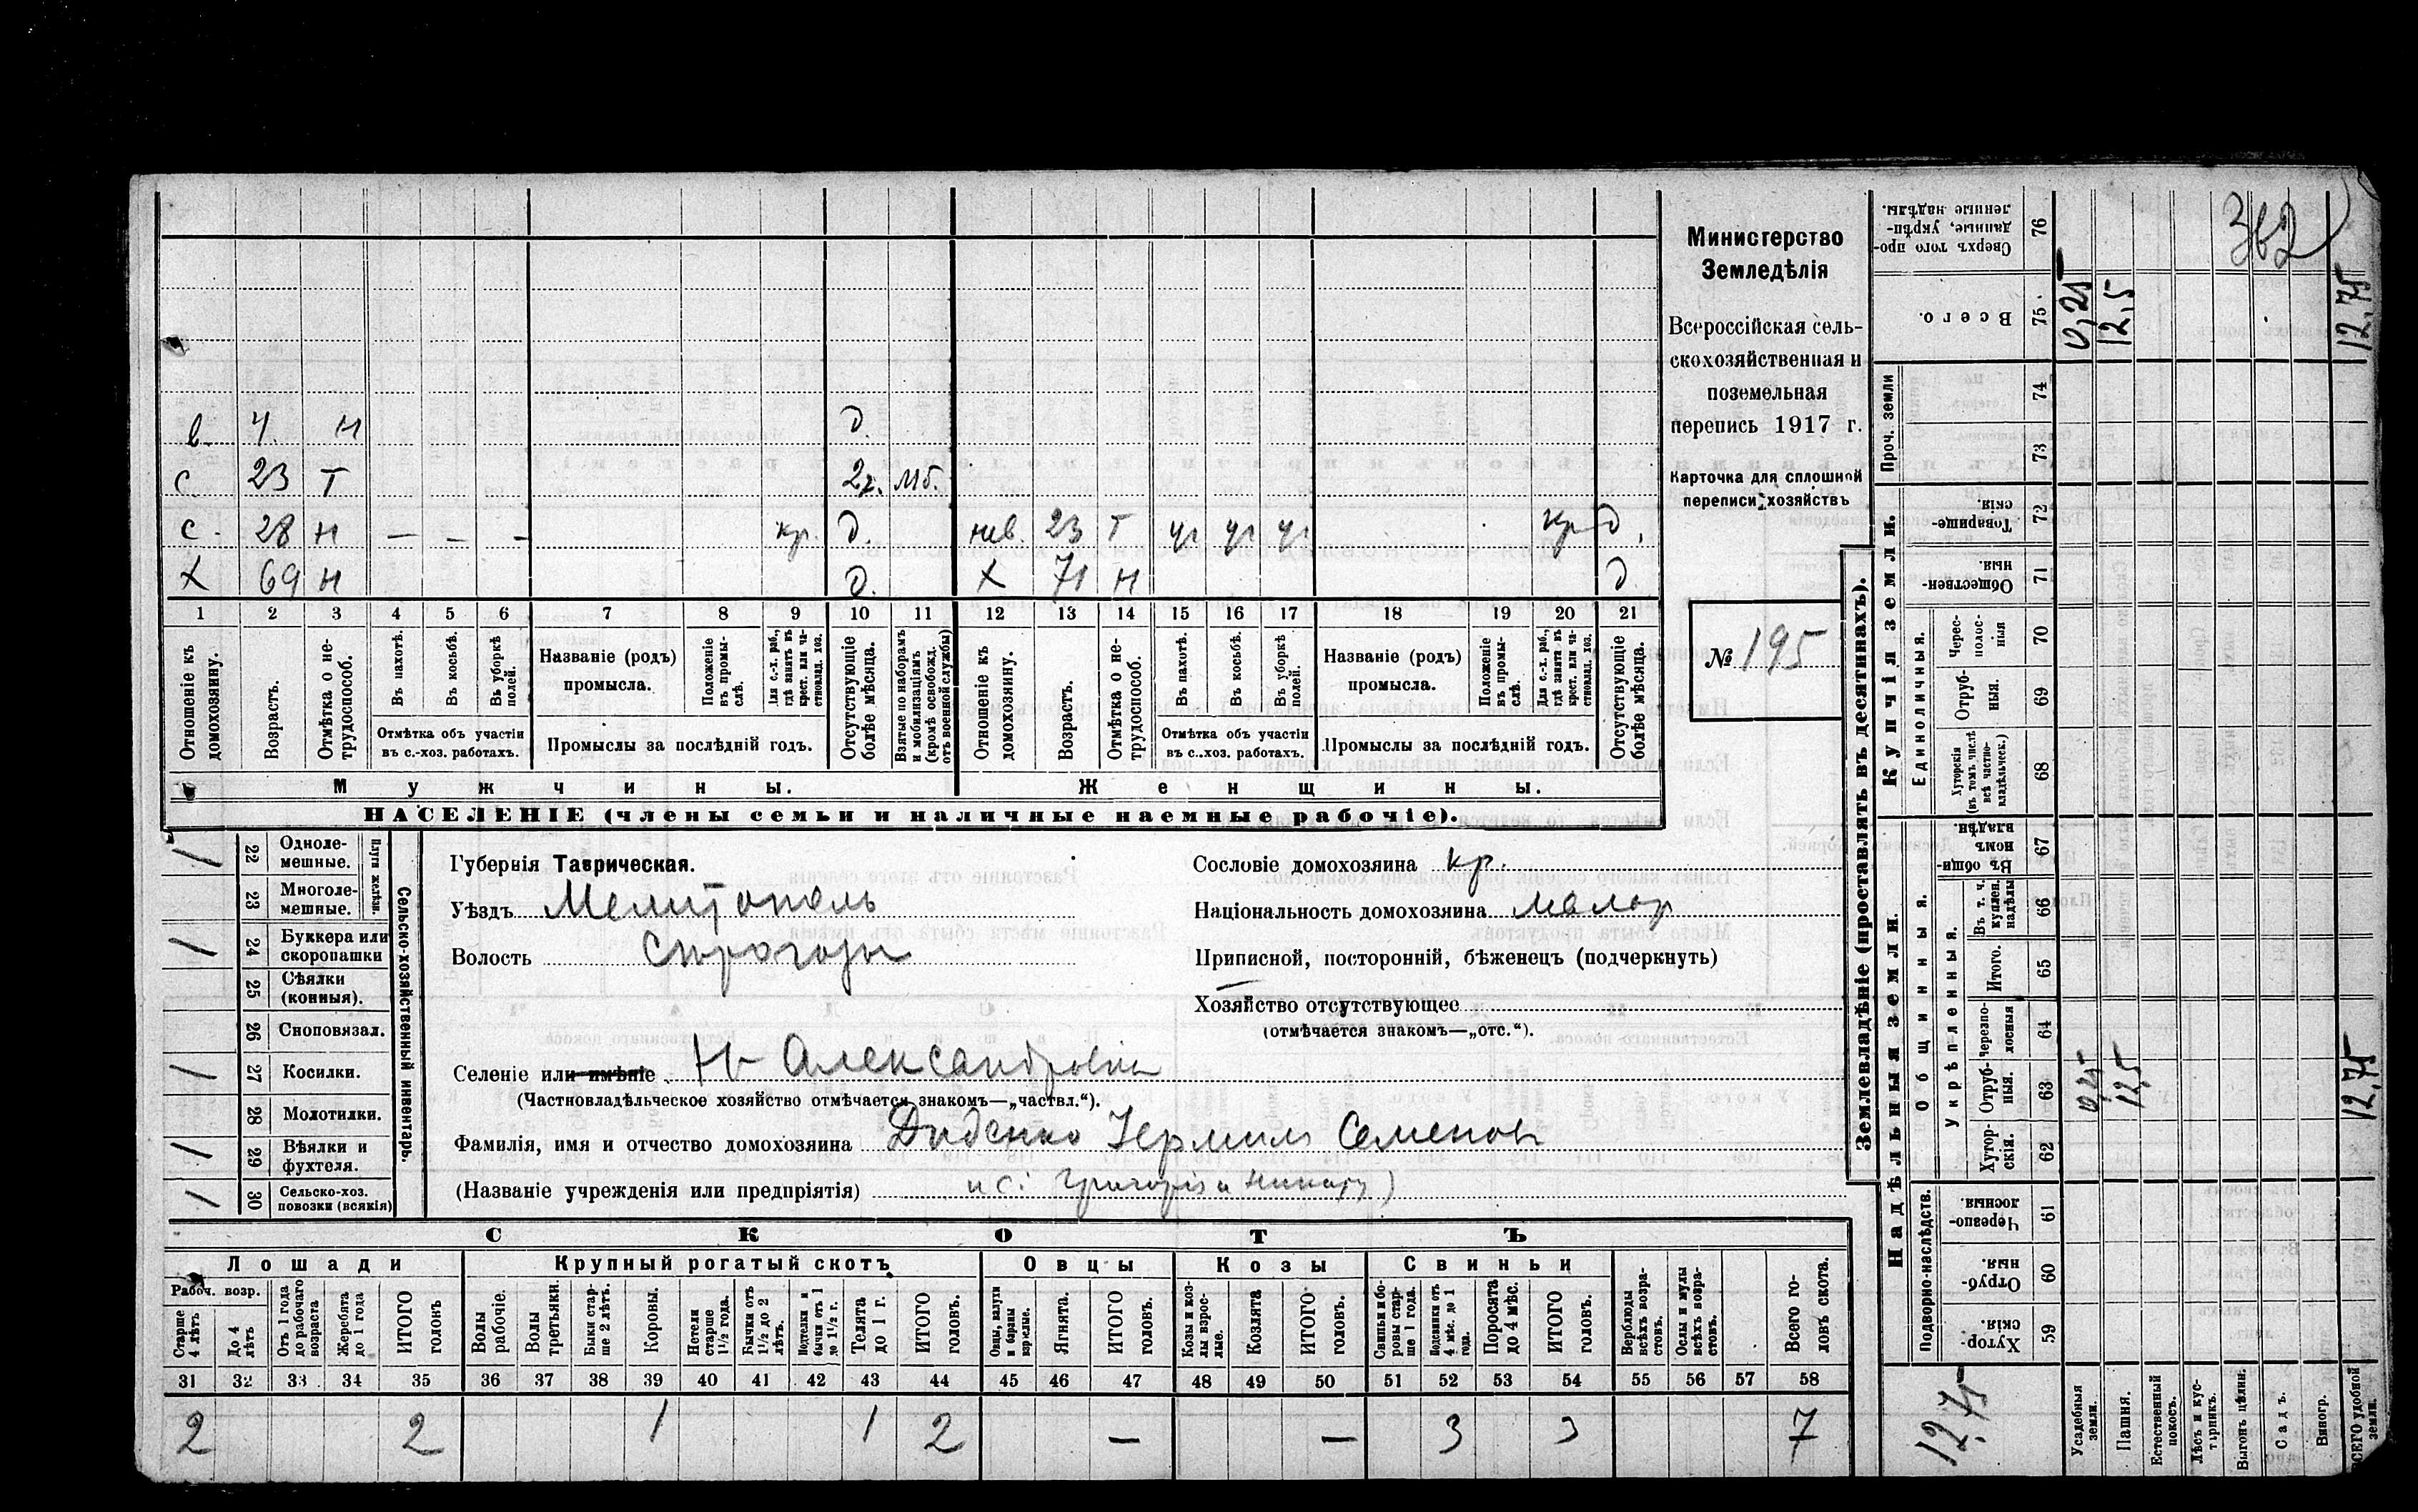 362
в. 4 н д.
с 23 т 2 г. Мб.
с. 28 н — — — кр. д. нев. 23 т уч уч уч кр д.
х 69 н д. х 71 н д
1 2 3 4 5 6 7 8 9 10 11 12 13 14 15 16 17 18 19 20 21
Отношеніе къ домохозяину.
Возрастъ.
Отмѣтка о не-трудоспособ.
Въ пахотѣ.
Въ косьбѣ.
Въ уборкѣ полей.
Названіе (родъ)
промысла.
Положеніе въ промы-слѣ.
Для с.-х. раб., гдѣ занятъ въ крест. или ча-стновлад. хоз.
Отсутствующіе болѣе мѣсяца.
Взятые по наборамъ и мобилизаціямъ (кромѣ освобожд. отъ военной службы)
Отношеніе къ домохозяину.
Возрастъ.
Отмѣтка о не-трудоспособ.
Въ пахотѣ.
Въ косьбѣ.
Въ уборкѣ полей.
Названіе (родъ)
промысла.
Положеніе въ промы-слѣ.
Для с.-х. раб., гдѣ занята въ крест. или ча-стновлад. хоз.
Отсутствующіе болѣе мѣсяца.
Отмѣтка объ участіи
въ с.-хоз. работахъ.
Промыслы за послѣдній годъ.
Отмѣтка объ участіи
въ с.-хоз. работахъ.
Промыслы за послѣдній годъ.
Мужчины.
Женщины.
НАСЕЛЕНІЕ (члены семьи и наличные наемные рабочіе).
Министерство
Земледѣлія
Всероссійская сель-
скохозяйственная и
поземельная
перепись 1917 г.
Карточка для сплошной
переписи хозяйствъ
№ 195
Сельско-хозяйственный инвентарь.
Плуги желѣзн.
1 22 Одноле-мешные.
23 Многоле-мешные.
1 24 Буккера или скоропашки
25 Сѣялки (конныя).
26 Сноповязал.
1 27 Косилки.
28 Молотилки.
1 29 Вѣялки и фухтеля.
1 30 Сельско-хоз. повозки (всякія)
Губернія Таврическая.
Уѣздъ Мелитополь
Волость Сѣрогозы
Селеніе или имѣніе Н-Александровка
(Частновладѣльческое хозяйство отмѣчается знакомъ—„частвл.“).
Фамилія, имя и отчество домохозяина Диденко Ермилъ Семенов
(Названіе учрежденія или предпріятія)
Сословіе домохозяина кр.
Національность домохозяина малор
Приписной, посторонній, бѣженецъ (подчеркнуть)
Хозяйство отсутствующее
(отмѣчается знакомъ—„отс.“).
СКОТЪ
Лошади Крупный рогатый скотъ Овцы Козы Свиньи
Рабоч. возр.
Старше 4 лѣтъ
До 4 лѣтъ
Отъ 1 года до рабочаго возраста
Жеребята до 1 года
ИТОГО головъ
Волы рабочіе.
Волы третьяки.
Быки стар-ше 2 лѣтъ.
Коровы.
Нетели старше 1½ года.
Бычки отъ 1½ до 2 лѣтъ.
Подтелки и бычки отъ 1 до 1½ г.
Телята до 1 г.
ИТОГО головъ.
Овцы, валухи и бараны взрослые.
Ягнята.
ИТОГО головъ.
Козы и коз-лы взрос-лые.
Козлята
ИТОГО головъ.
Свиньи и бо-ровы стар-ше 1 года.
Подсвинки отъ 4 мѣс. до 1 года.
Поросята до 4 мѣс.
ИТОГО головъ.
Верблюды всѣхъ возра-стовъ.
Ослы и мулы всѣхъ возра-стовъ.
Всего го-ловъ скота.
31 32 33 34 35 36 37 38 39 40 41 42 43 44 45 46 47 48 49 50 51 52 53 54 55 56 57 58
2 2 1 1 2 — — 3 3 7
Землевладѣніе (проставлять въ десятинахъ).
Надѣльныя земли.
Купчія земли.
Проч. земли
Подворно-наслѣдств.
Общинныя.
Укрѣпленныя.
Единоличныя.
Сверхъ того про-данные, укрѣп-ленные надѣлы. 76
Всего. 75 0,25 12,5 12,75
74
73
Товарище-скія 72
Обществен-ныя. 71
Черес-полос-ныя 70
Отруб-ныя. 69
Хуторскія (въ томъ числѣ всѣ частно-владѣльческ.) 68
Въ общин-номъ владѣн. 67
Въ т. ч. куплен. надѣлы 66
Итого. 65
Черезпо-лосныя 64
Отруб-ныя. 63 0,25 12,5 12,75
Хутор-скія. 62
Черезпо-лосныя 61
Отруб-ныя. 60
Хутор-скія. 59
12,75
Усадебныя земли.
Пашня.
Естественный покосъ.
Лѣсъ и кус-тарникъ.
Выгонъ цѣлин.
Садъ.
Виногр.
ВСЕГО удобной земли.